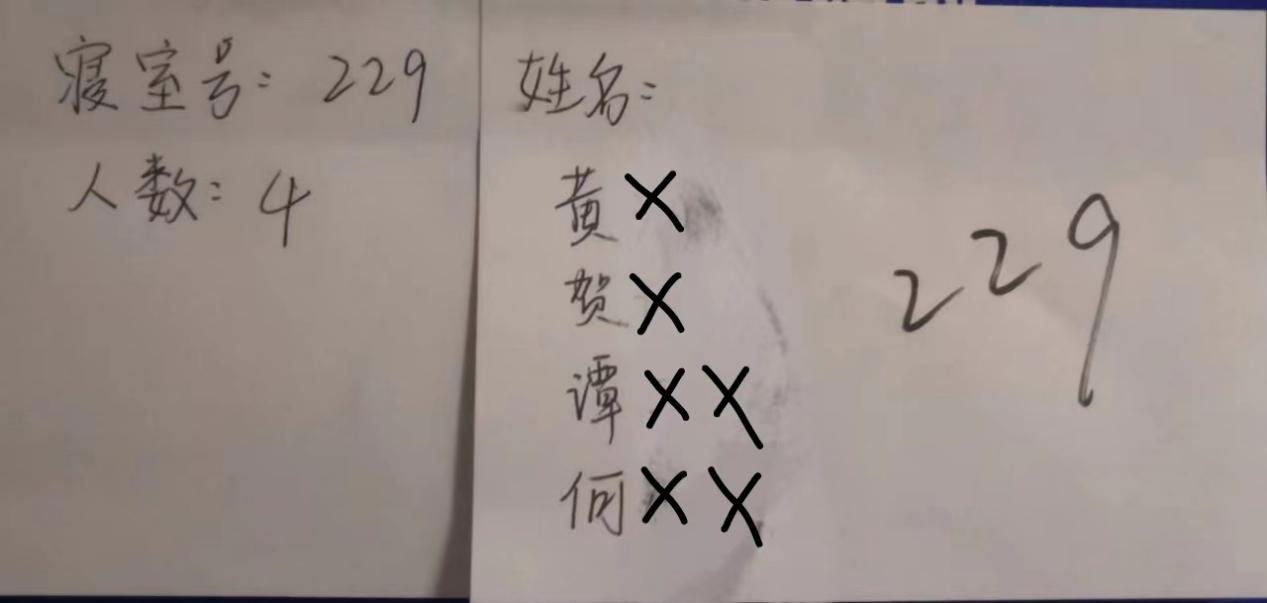 寝室号: 229
人数: 4
姓名:
黄X
贺X
谭XX
何XX
229